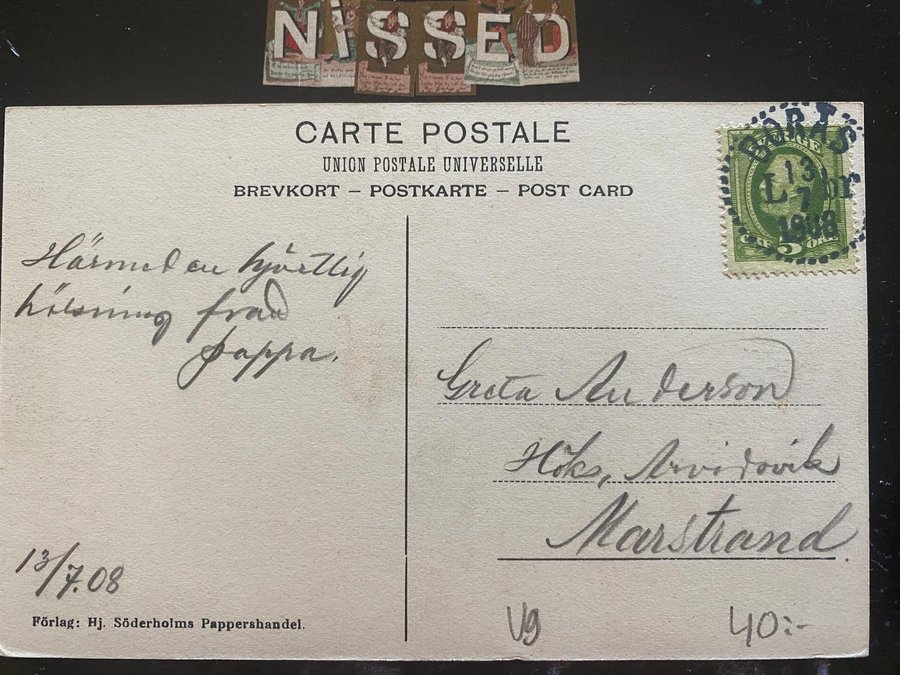 NISSED
CARTE POSTALE
UNION POSTALE UNIVERSELLE
BREVKORT – POSTKARTE – POST CARD
BORÅS
13
7
1908
L br
SVERIGE
5 ÖRE
Härmed en hjärtlig
hälsning från
pappa.
Greta Anderson
Höks, Arvidsvik
Marstrand.
13/7.08
Förlag: Hj. Söderholms Pappershandel.
Vg
40:-